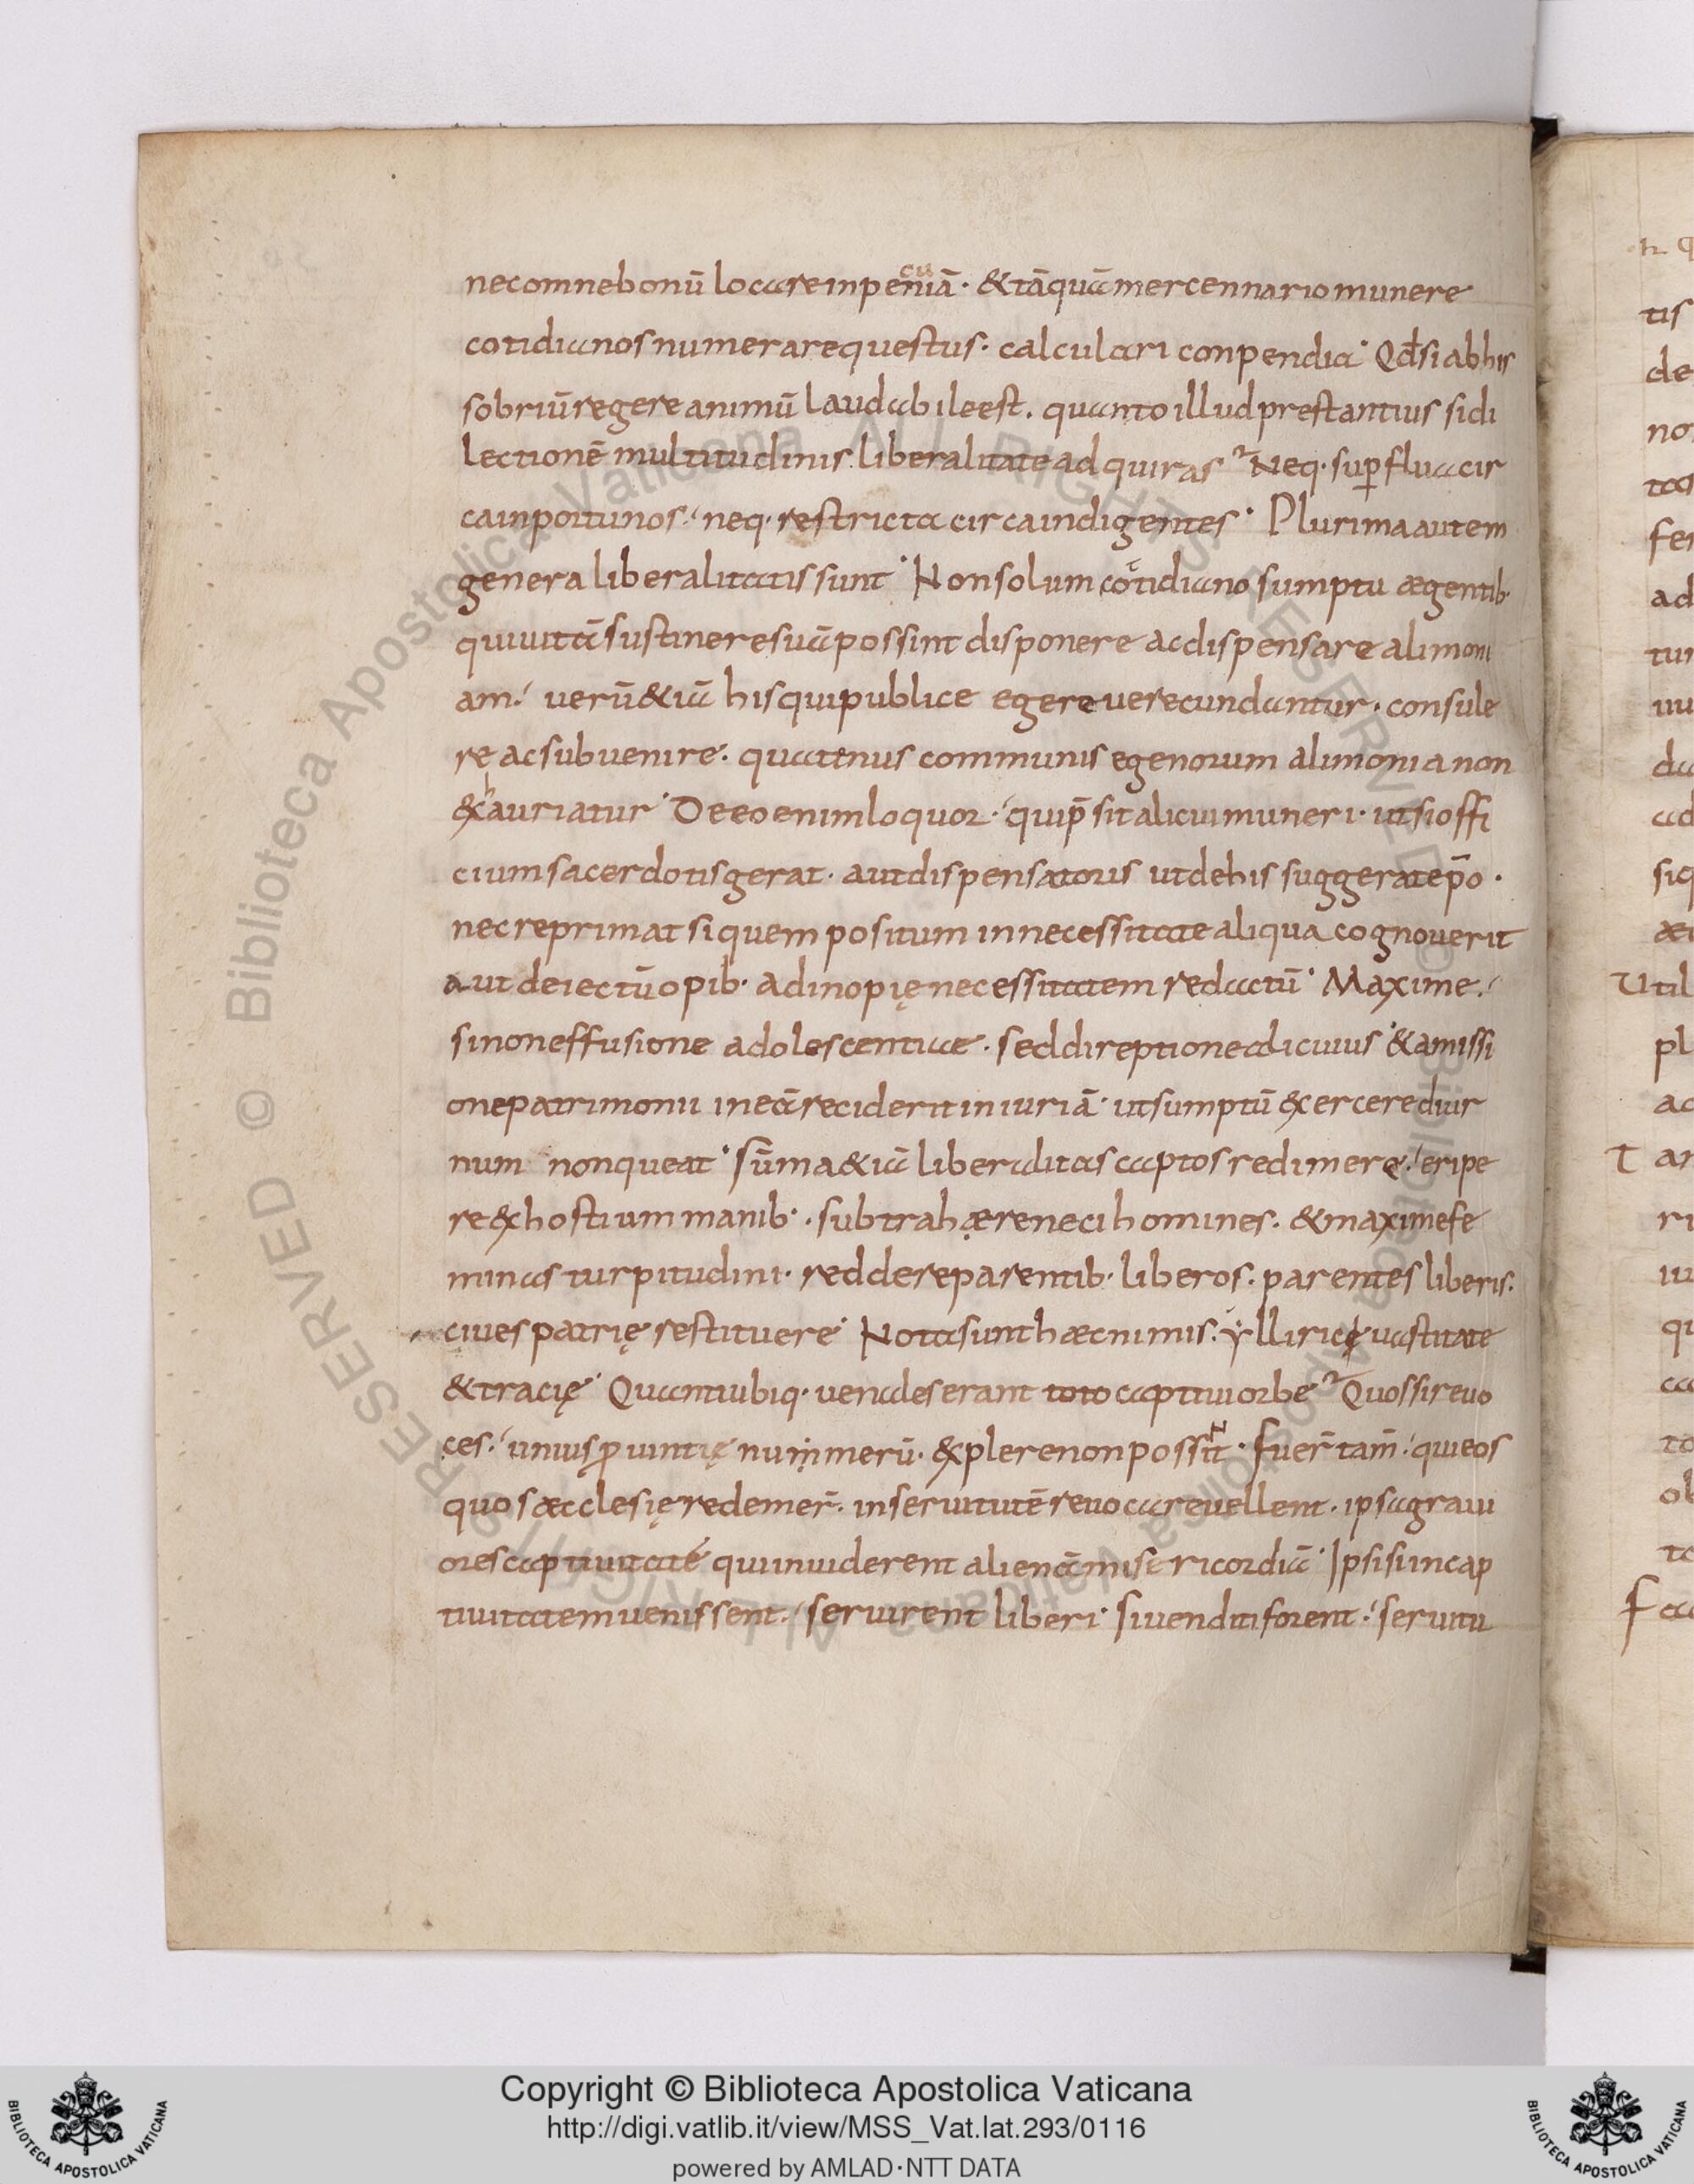 nec omne bonū locare in peniā · & tāquā mercennario munere
cu
cotidianos numerare questus · calculari conpendia · Qd̄ si ab his
sobriū regere animū laudabile est . quanto illud prestantius si di
lectionē multitudinis liberalitate adquiras Neq· sup̱flua cir
ca inportunos · neq· restricta circa indigentes · Plurima autem
genera liberalitatis sunt · Non solum cotidiano sumptu ægentib·
qui uitā sustinere suā possint disponere ac dispensare alimoni
am · uerū & iā his qui publice egere uerecundantur · consule
rę ac subuenire · quatenus communis egenorum alimonia non
exhauriatur · De eo enim loquor · qui p̄sit alicui muneri · ut si offi
cium sacerdotis gerat · aut dispensatoris ut de his suggerat ep̄o ·
nec reprimat si quem positum in necessitate aliqua cognouerit
aut deiectū opib· ad inopię necessitatem redactū · Maxime ·
si non effusione adolescentiae · sed direptione alicuius & amissi
one patrimonii in eā reciderit iniuriā · ut sumptū exercere diur
num non queat · sūma & iā liberalitas captos redimere · eripe
re ex hostium manib· · subtrahære neci homines · & maxime fe
minas turpitudini · reddere parentib· liberos · parentes liberis ·
ciues patrię restituere · Nota sunt hæc nimis · yllirice uastitate
& tracię · Quanti ubiq· uenales erant toto captiui orbe Quos si reuo
ces · unius ꝓuintię nummerū · explere non possint · fuer̄ tam̄ · qui eos
quos æcclesię redemer̄ · in seruitutē reuocare uellent · ipsa graui
ores captiuitate qui inuiderent alienā misericordiā · Ipsi si in cap
tiuitatem uenissent · seruirent liberi · si uenditi forent · seruitu
tis
de
no
fer
ad
tur
uu
ad
Util
pl
ac
T ar
ri
qu
to
ob
Copyright © Biblioteca Apostolica Vaticana
http://digi.vatlib.it/view/MSS_Vat.lat.293/0116
powered by AMLAD·NTT DATA
BIBLIOTECA APOSTOLICA VATICANA
BIBLIOTECA APOSTOLICA VATICANA
© Biblioteca Apostolica Vaticana ALL RIGHTS RESERVED
© Biblioteca Apostolica Vaticana ALL RIGHTS RESERVED